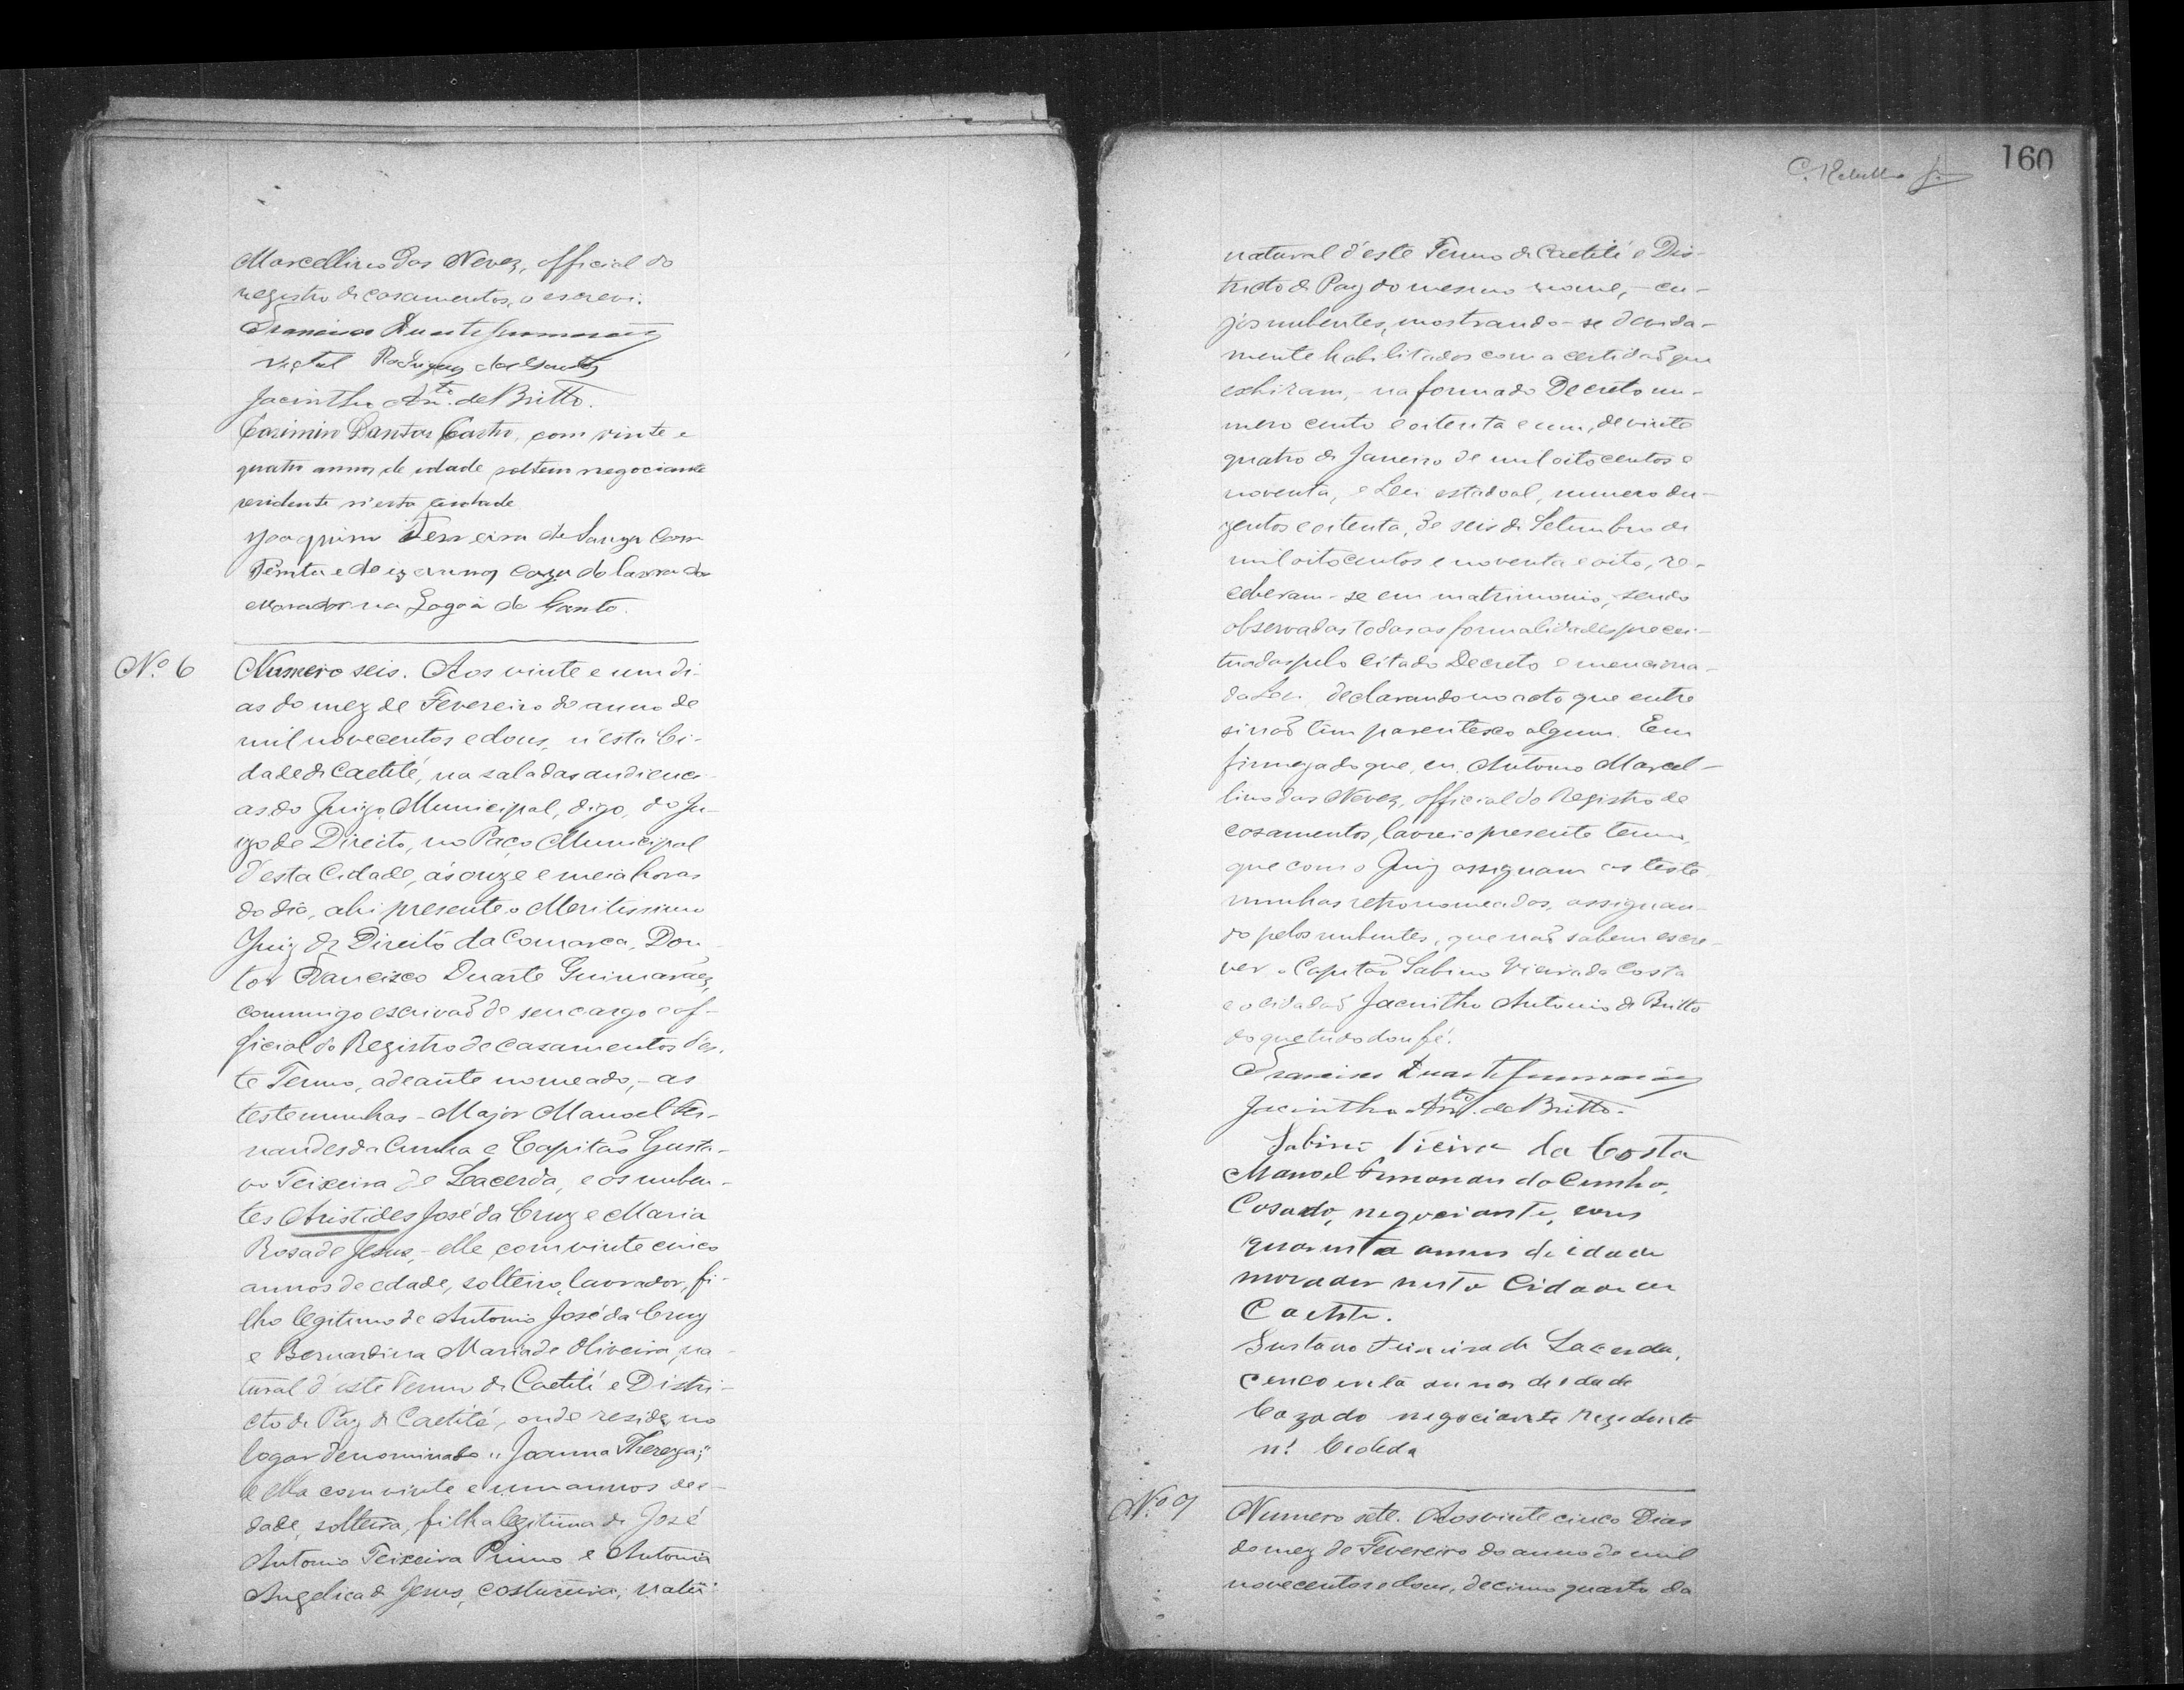 Marcellino das Neves, official do
registro de casamentos, o escrevi.
Francisco Duarte Guimarães
Victal Rodrigues dos Santos
Jacintho Antº. de Britto.
Casimiro Dantas Castro, com vinte e
quatro annos de idade solteiro negociante
residente n'esta cidade
Joaquim Ferreira de Souza com
Trinta e do is annos Cazado lavrador
morador na Lagoa do Canto.
Nº. 6
Numero seis. Aos vinte e um di-
as do mez de Fevereiro do anno de
mil novecentos e dous, n'esta Ci-
dade de Caetité, na sala das audienci-
as do Juizo Municipal, digo, do Ju-
izo de Direito, no Paço Municipal
d'esta Cidade, ás onze e meia horas
do dia, ahi presente o Meritissimo
Juiz de Direito da Comarca, Dou-
tor Francisco Duarte Guimarães,
commigo escrivaõ de seu cargo e of-
ficial do Registro de casamentos d'es-
te Termo, adeante nomeado, - as
testemunhas - Major Manoel Fer-
nandes da Cunha e Capitaõ Gusta-
vo Teixeira de Lacerda, e os nuben-
tes Aristides José da Cruz e Maria
Rosa de Jesus, - elle com vinte cinco
annos de edade, solteiro, lavrador, fi-
lho legitimo de Antonio José da Cruz
e Bernardina Maria de Oliveira, na-
tural d'este Termo de Caetité e Distri-
cto de Paz de Caetité, onde reside, no
logar denominado "Joanna Thereza;"
e ella com vinte e um annos de e-
dade, solteira, filha legitima de José
Antonio Teixeira Primo e Antonia
Angelica de Jesus, costureira, natu-
160
natural d'este Termo de Caetité e Dis-
tricto de Paz do mesmo nome, - cu-
jos nubentes, mostrando-se devida-
mente habilitados com a certidaõ que
exhiram, - na forma do Decreto nu-
mero cento e oitenta e um, de vinte
quatro de Janeiro de mil oitocentos e
noventa, e Lei estadoal, numero du-
zentos e oitenta, de seis de Setembro de
mil oitocentos e noventa e oito, re-
ceberam-se em matrimonio, sendo
observadas todas as formalidades precei-
tuadas pelo citado Decreto e menciona-
da Lei, declarando no acto que entre
si naõ têm parentesco algum. Em
firmeza do que, eu, Antonio Marcel-
lino das Neves, official do Registro de
casamentos, lavrei o presente termo,
que com o Juiz assignam as teste-
munhas retro nomeadas, assignan-
do pelos nubentes, que naõ sabem escre-
ver o Capitaõ Sabino Vieira da Costa
e o cidadaõ Jacintho Antonio de Britto
do que tudo dou fé.
Francisco Duarte Guimarães
Jacintho Antº. de Britto.
Sabino Vieira da Costa
Manoel Fernandes da Cunha,
Casado, negociante, com
quarenta annos de idade
morador nesta Cidade de
Caetité.
Gustavo Teixeira de Lacerda,
cencoenta annos de idade
Cazado negociante Rezidente
n'. Cidada
Nº 7
Numero sete. Aos vinte cinco dias
do mez de Fevereiro do anno de mil
novecentos e dous, decimo quarto da